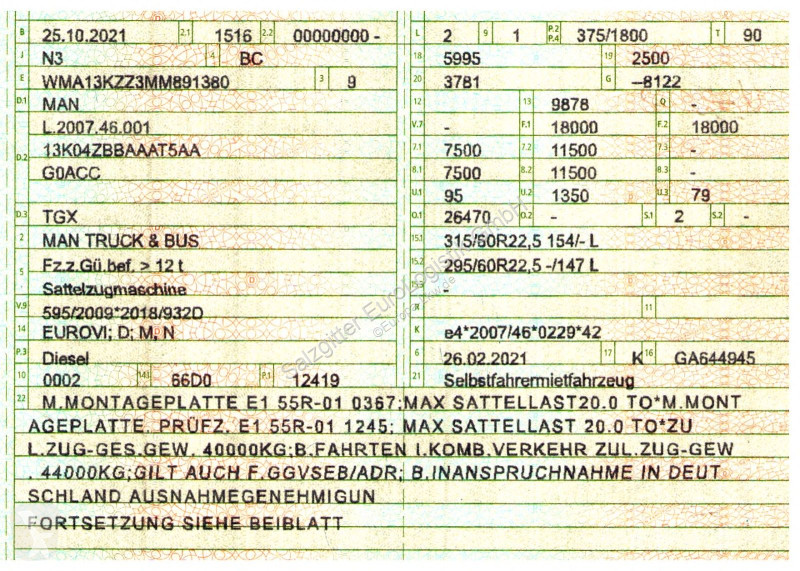 B 25.10.2021 2.1 1516 2.2 00000000 -
J N3 4 BC
E WMA13KZZ3MM891380 3 9
D.1 MAN
L.2007.46.001
D.2 13K04ZBBAAAT5AA
G0ACC
D.3 TGX
2 MAN TRUCK & BUS
5 Fz.z.Gü.bef. > 12 t
Sattelzugmaschine
V.9 595/2009*2018/932D
14 EUROVI; D; M, N
P.3 Diesel
10 0002 14.1 66D0 P.1 12419
L 2 9 1 P.2 P.4 375/1800 T 90
18 5995 19 2500
20 3781 G —8122
12 13 9878 Q -
V.7 - F.1 18000 F.2 18000
7.1 7500 7.2 11500 7.3 -
8.1 7500 8.2 11500 8.3 -
U.1 95 U.2 1350 U.3 79
O.1 26470 O.2 - S.1 2 S.2 -
15.1 315/60R22,5 154/- L
15.2 295/60R22,5 -/147 L
15.3 -
R 11
K e4*2007/46*0229*42
6 26.02.2021 17 K 16 GA644945
21 Selbstfahrermietfahrzeug
22 M.MONTAGEPLATTE E1 55R-01 0367;MAX SATTELLAST20.0 TO*M.MONT
AGEPLATTE. PRÜFZ. E1 55R-01 1245; MAX SATTELLAST 20.0 TO*ZU
L.ZUG-GES.GEW. 40000KG;B.FAHRTEN I.KOMB.VERKEHR ZUL.ZUG-GEW
. 44000KG;GILT AUCH F.GGVSEB/ADR; B.INANSPRUCHNAHME IN DEUT
SCHLAND AUSNAHMEGENEHMIGUN
FORTSETZUNG SIEHE BEIBLATT
Salzgitter EuroLogistik GmbH